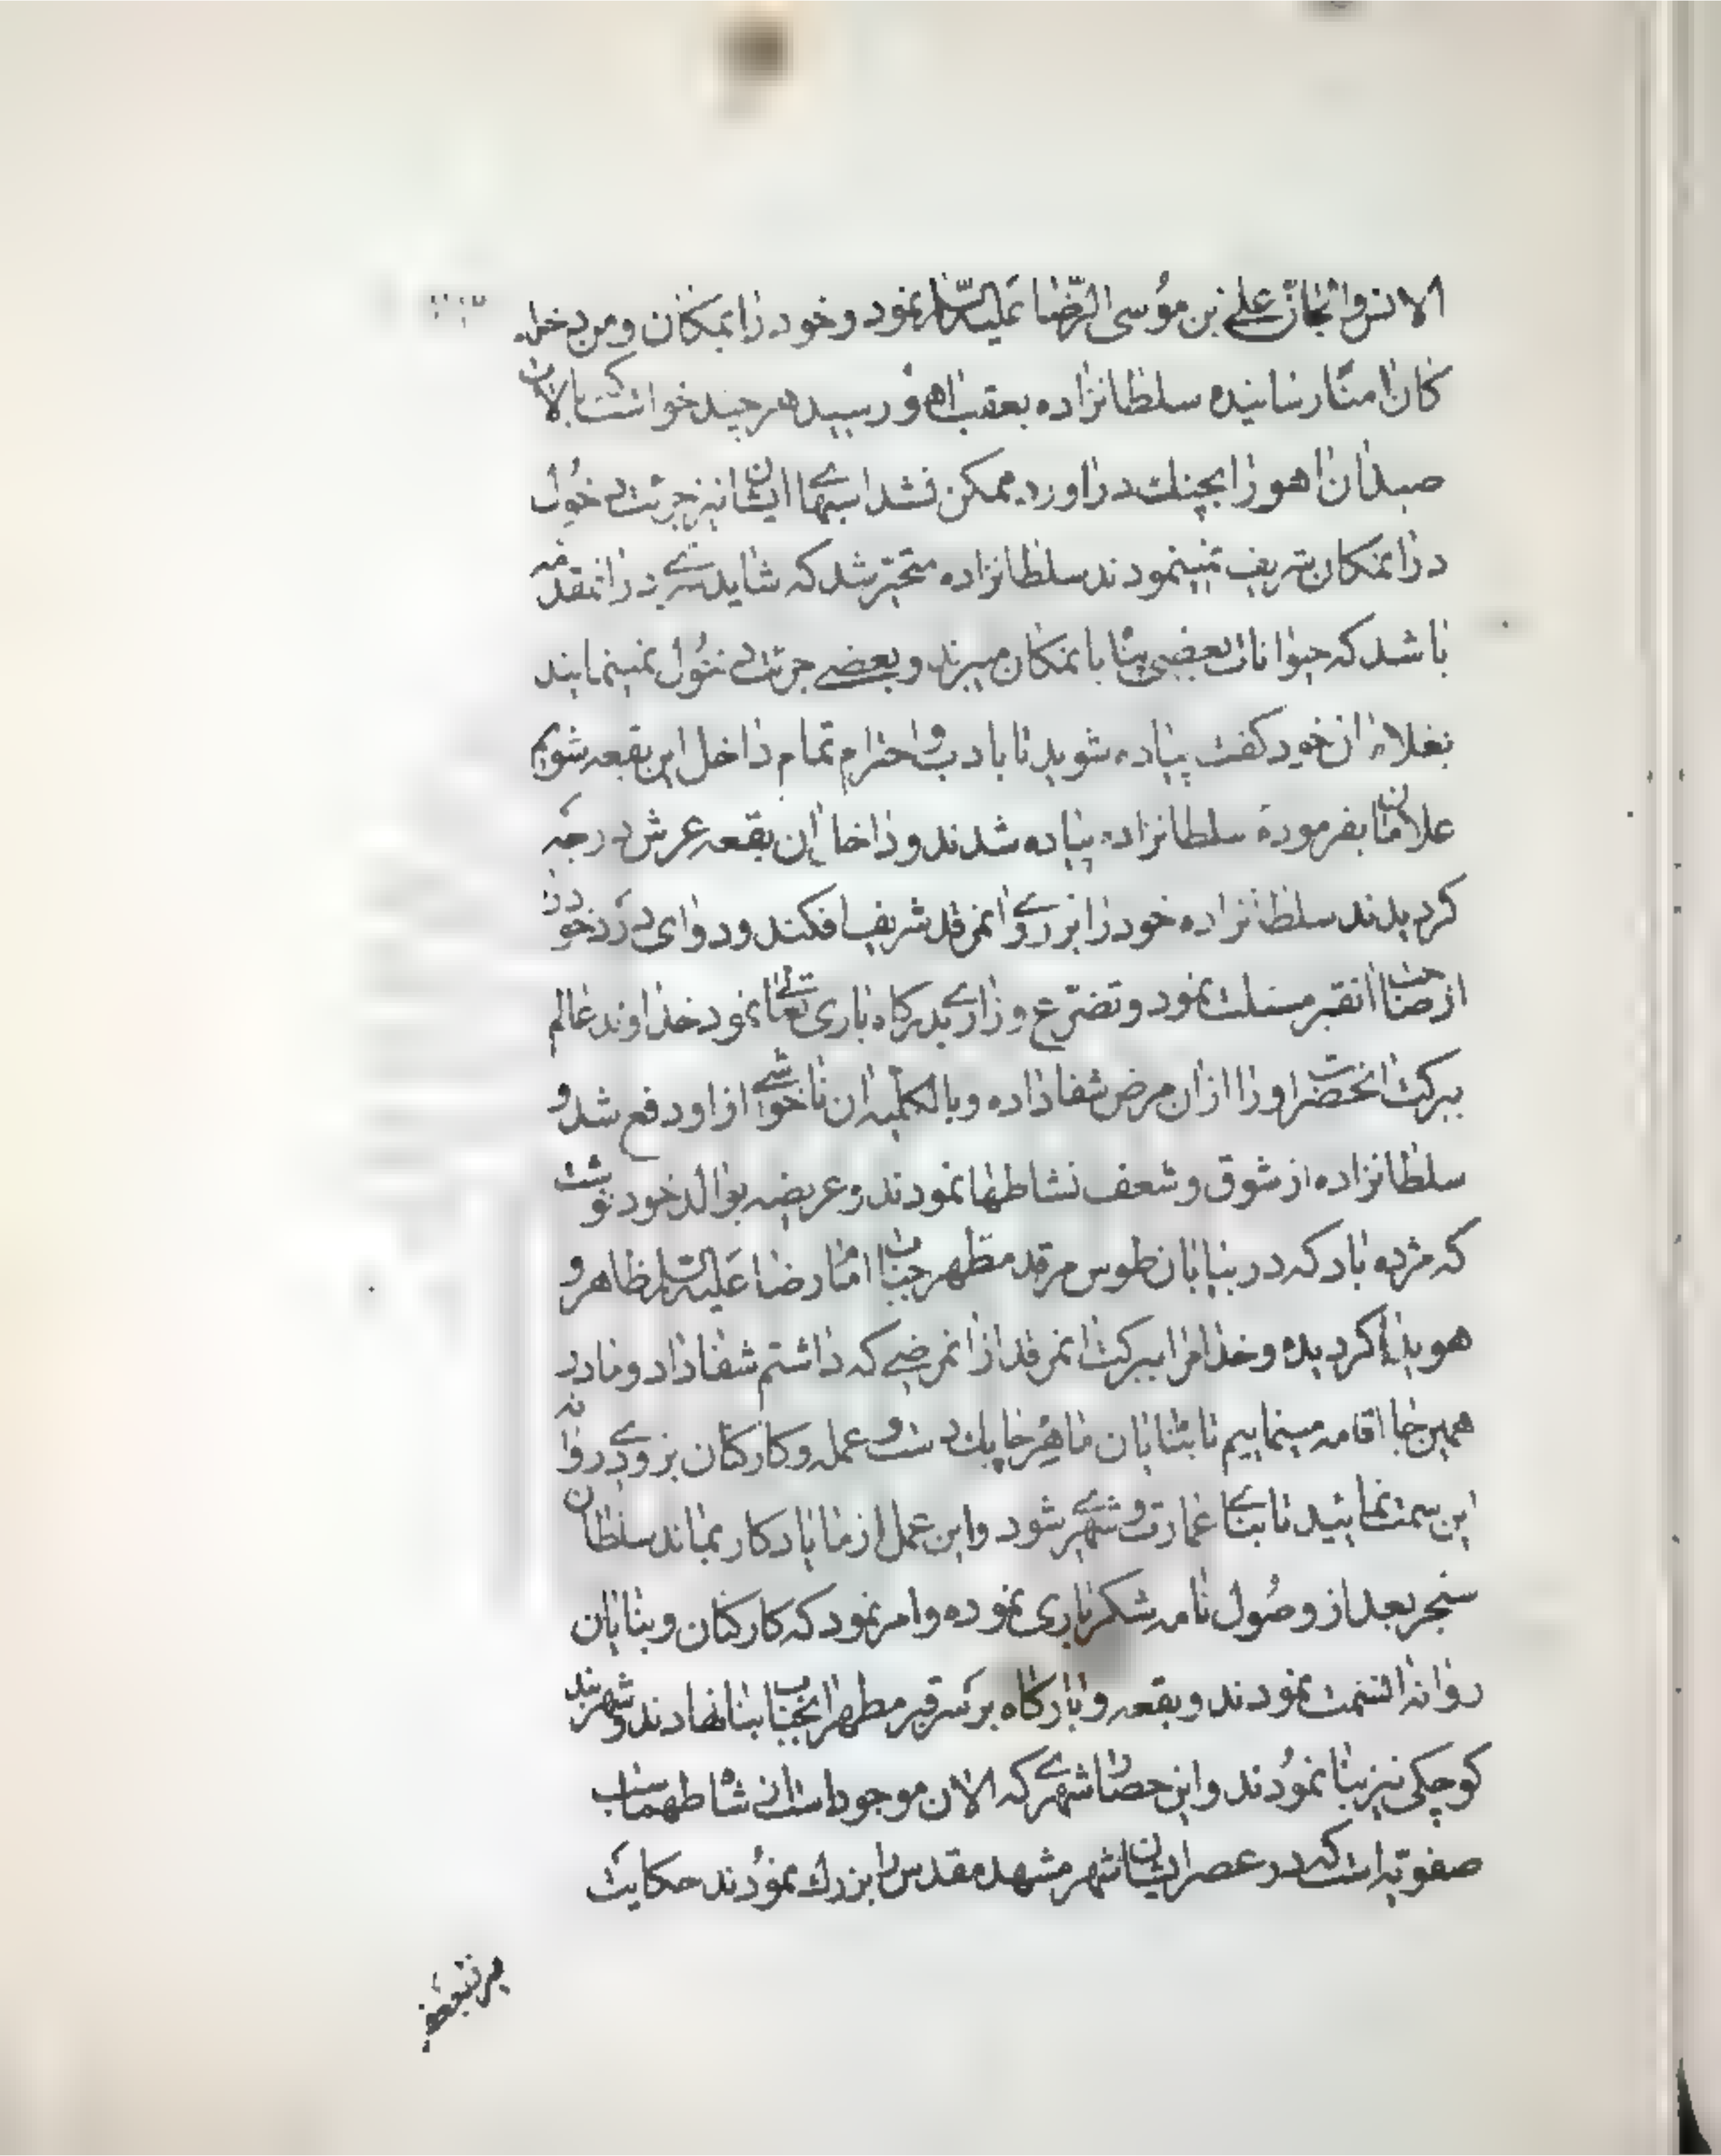 الانس والجان علی بن موسی الرضا علیه السلام نمود و خود را بمکان و من دخله
کان امنا رسانیده سلطانزاده بعقب اهو رسید هر چند خواست که بالان
صیدان اهو را بچنگ دراورد ممکن نشد اسبهای ایشان نیز جرئت دخول
درانمکان شریف نمینمودند سلطانزاده متحیر شد که شاید سری درانمقدمه
باشد که حیوانات بعضی پناه بانمکان میبرند و بعضی جرئت دخول نمینمایند
بغلامان خود کفت پیاده شوید تا با ادب و احترام تمام داخل این بقعه شویم
غلامان بفرموده سلطانزاده پیاده شدند و داخل ان بقعه عرش درجه
کردیدند سلطانزاده خود را بر روی انمرقد شریف افکند و دوای درد خود را
از صاحب انقبر مسئلت نمود و تضرع و زاری بدرکاه باری تعالی نمود خداوند عالم
ببرکت انحضرت او را از ان مرض شفا داده و بالکلیه ان ناخوشی از او دفع شد و
سلطانزاده از شوق و شعف نشاطها نمودند و عریضه بوالد خود نوشت
که مژده باد که در بیابان طوس مرقد مطهر جناب امام رضا علیه السلام ظاهر و
هویدا کردیده و خدا مرا ببرکت انمرقد از انمرضی که داشتم شفا داد و ما در
همین جا اقامه مینماییم تا بنایان ماهر چابک دست و عمله و کارکنان بزودی روانه
این سمت نمایید تا بنای عمارت و شهری شود و این عمل از ما یادکار بماند سلطان
سنجر بعد از وصول نامه شکر باری نموده و امر نمود که کارکنان و بنایان
روانه انسمت نمودند و بقعه و بارکاه بر سر قبر مطهر انجناب بنا نهادند و شهر بند
کوچکی نیز بنا نمودند و این حصار شهری که الان موجود است شاه طهماسب
صفویه است که در عصر ایشان شهر مشهد مقدس را بزرک نمودند حکایت